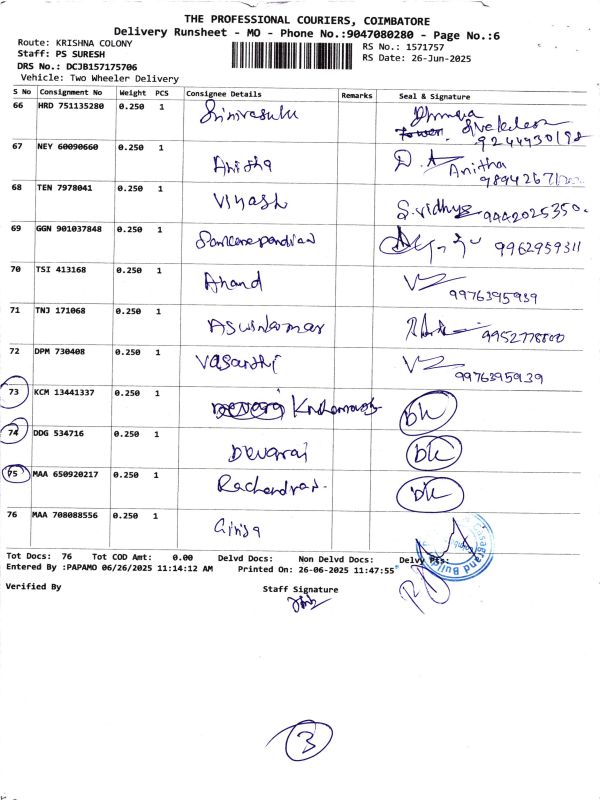 THE PROFESSIONAL COURIERS, COIMBATORE
Delivery Runsheet - MO - Phone No.:9047080280 - Page No.:6
Route: KRISHNA COLONY
Staff: PS SURESH
RS No.: 1571757
DRS No.: DCJB157175706
RS Date: 26-Jun-2025
Vehicle: Two Wheeler Delivery
S No Consignment No Weight PCS Consignee Details Remarks Seal & Signature
66 HRD 751135280 0.250 1 Srinivasulu
9244930198
67 NEY 60090660 0.250 1 Anitha Anitha
68 TEN 7978041 0.250 1 S.vidhya 9442025350.
69 GGN 901037848 0.250 1 Sankarapandian 9962959311
70 TSI 413168 0.250 1 Anand
9976395939
71 TNJ 171068 0.250 1 Aswinkumar
72 DPM 730408 0.250 1 Vasanthi
9976395939
73 KCM 13441337 0.250 1
74 DDG 534716 0.250 1 Devaraj
75 MAA 650920217 0.250 1
76 MAA 708088556 0.250 1 Girija
Tot Docs: 76 Tot COD Amt: 0.00 Delvd Docs: Non Delvd Docs: Delvy Pts:
Entered By :PAPAMO 06/26/2025 11:14:12 AM Printed On: 26-06-2025 11:47:55
Verified By Staff Signature
3